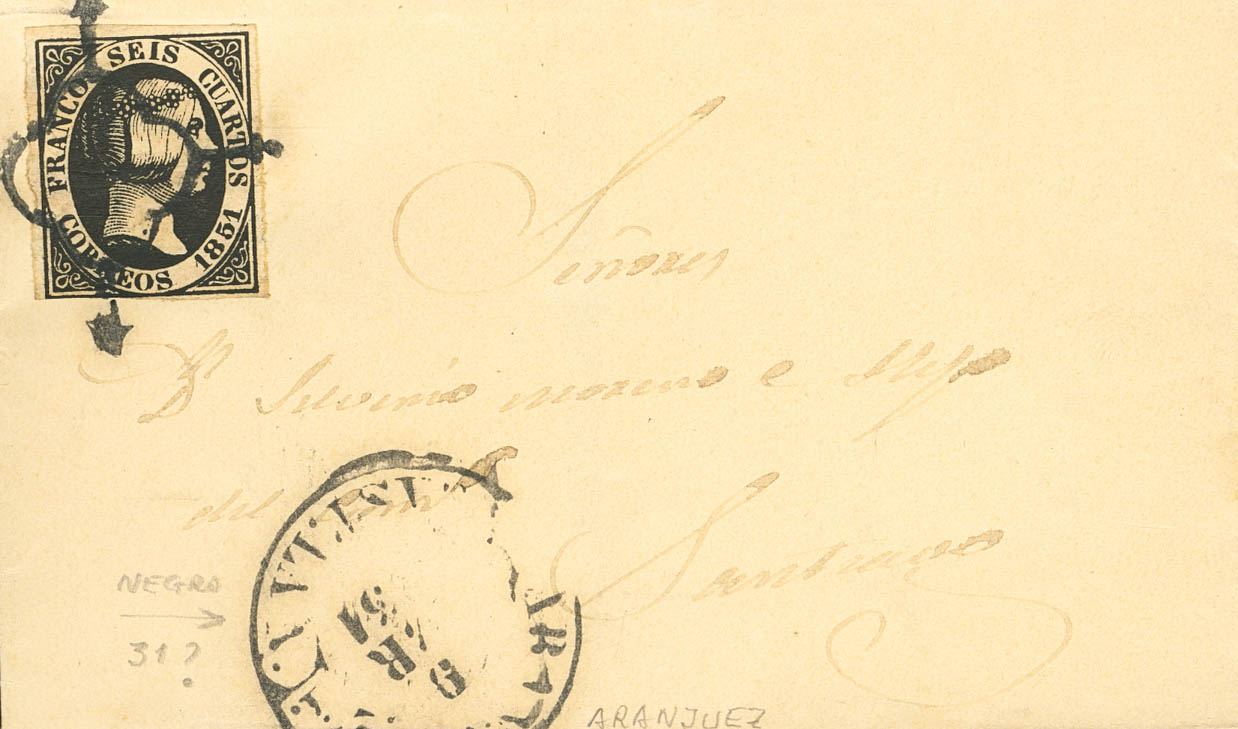 FRANCO SEIS CUARTOS
CORREOS 1851
Señores
Dn Silverio moreno e Hijo
del
Santiago
NEGRO
31?
51
R
ARANJUEZ